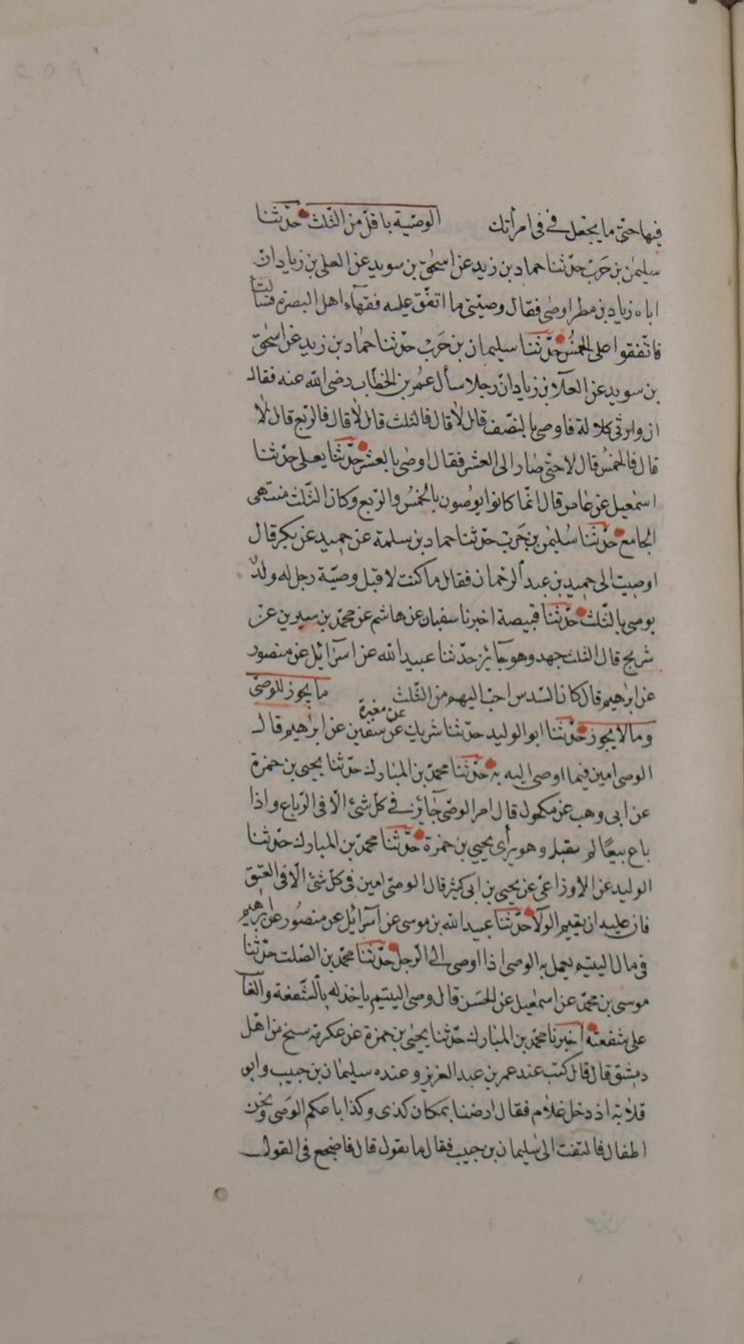 فيها حتى ما يجعل في في امرأتك الوصية باقل من الثلث حدثنا
سليمن بن حرب حدثنا حماد بن زيد عن اسحق بن سويد عن العلى بن زياد ان
اباه زياد بن مطر اوصى فقال وصيتى ما اتفق عليه فقهاء اهل البصرة فسألت
فاتفقوا على الخمس حدثنا سليمان بن حرب حدثنا حماد بن زيد عن اسحق
بن سويد عن العلاء بن زياد ان رجلا سأل عمر بن الخطاب رضى الله عنه فقال
ان وارثى كلالة فاوصى بالنصف قال لا قال فالثلث قال لا قال فالربع قال لا
قال فالخمس قال لا حتى صار الى العشر فقال اوصى بالعشر حدثنا يعلى حدثنا
اسمعيل عن عامر قال انما كانوا يوصون بالخمس والربع وكان الثلث منتهى
الجامع حدثنا سليمن بن حرب حدثنا حماد بن سلمة عن حميد عن بكر قال
اوصيت الى حميد بن عبد الرحمان فقال ما كنت لاقبل وصية رجل له ولد
يوصى بالثلث حدثنا قبيصة اخبرنا سفيان عن هاشم عن محمد بن سيرين عن
شريح قال الثلث جهد وهو جائز حدثنا عبيد الله عن اسرائيل عن منصور
عن ابرهيم قال كان السدس احب اليهم من الثلث ما يجوز للوصى
وما لا يجوز حدثنا ابو الوليد حدثنا شريك عن سفين عن مغيرة عن ابرهيم قال
الوصى امين فيما اوصى اليه به حدثنا محمد بن المبارك حدثنا يحيى بن حمزة
عن ابى وهب عن مكحول قال امر الوصى جائز في كل شئ الا فى الرباع واذا
باع بيعا لم يقبل وهو يرأى يحيى بن حمزة حدثنا محمد بن المبارك حدثنا
الوليد عن الاوزاعى عن يحيى بن ابى كثير قال الوصى امين فى كل شئ الا فى العتق
فان عليه ان يقيم الولاء حدثنا عبيد الله بن موسى عن اسرائيل عن منصور عن ابرهيم
فى مال اليتيم يعمل به الوصى اذا اوصى الى الرجل حدثنا محمد بن الصلت حدثنا
موسى بن محمد عن اسمعيل عن الحسن قال وصى اليتيم ياخذ له بالشفعة والغائب
على شفعته اخبرنا محمد بن المبارك حدثنا يحيى بن حمزة عن عكرمة شيخ من اهل
دمشق قال قال كنت عند عمر بن عبد العزيز وعنده سليمان بن حبيب وابو
قلابة اذ دخل غلام فقال ارضنا بمكان كذى وكذا باعكم الوصى ونحن
اطفال فالتفت الى سليمان بن حبيب فقال ما تقول قال فاضجع فى القول